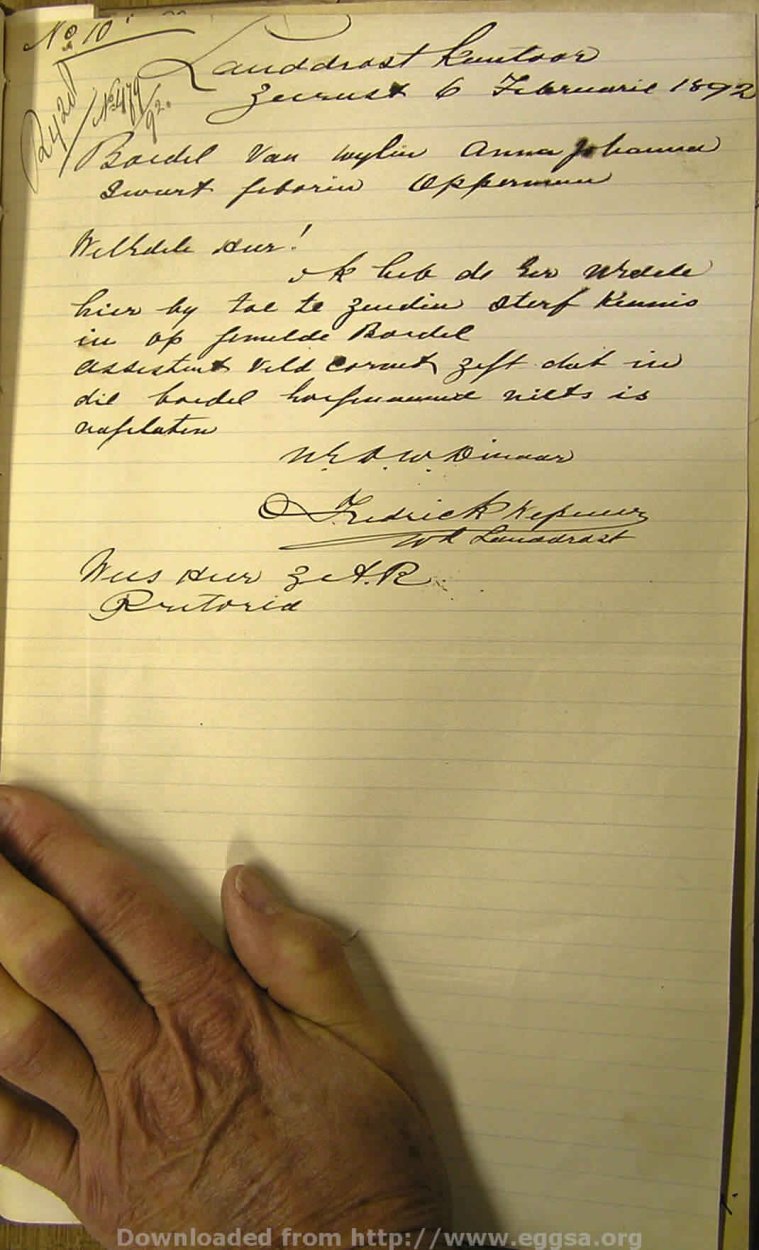 No 10
R420/
No 479/92.
Landdrost Kantoor
Zeerust 6 Februarie 1892
Boedel Van wylin Anna Johanna
Swart geborin Opperman
WelEdele Heer!
ik heb de Eer UwEdele
hier by toe te zendin Sterf Kennis
in op gemelde Boedel
assistent Veld Cornet zegt dat in
die boedel hoegenaamd niets is
nagelatin
UwEd.W. Dinaar
Fredrick
Wd Landdrost
Wees Heer Z.A.R.
Pretoria
Downloaded from http://www.eggsa.org